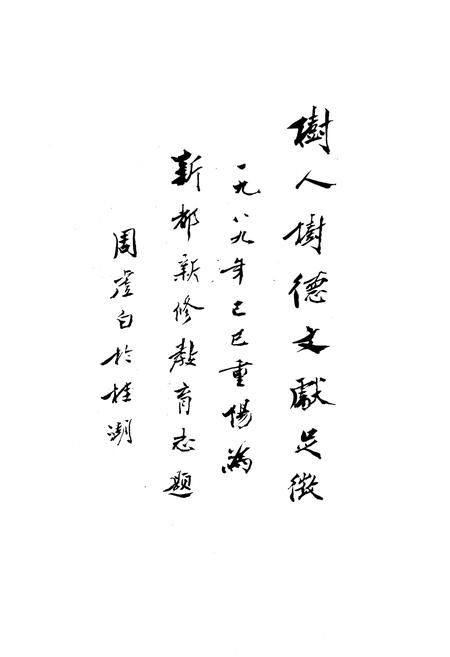 樹人樹德文獻足徵
一九八九年己巳重陽為
新都新修教育志題
周虛白於桂湖